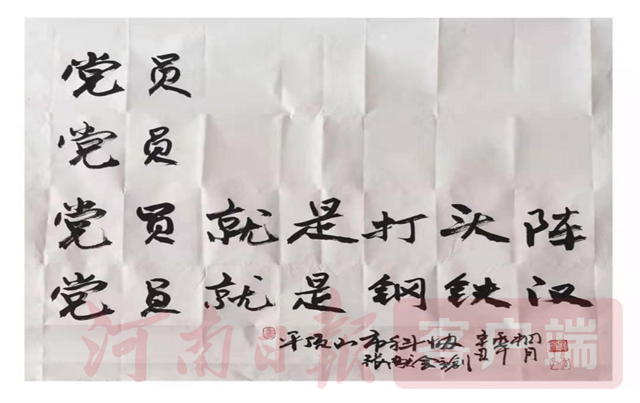 党员
党员
党员就是打头阵
党员就是钢铁汉
平顶山市科协
辛丑年
河南日报 客户端